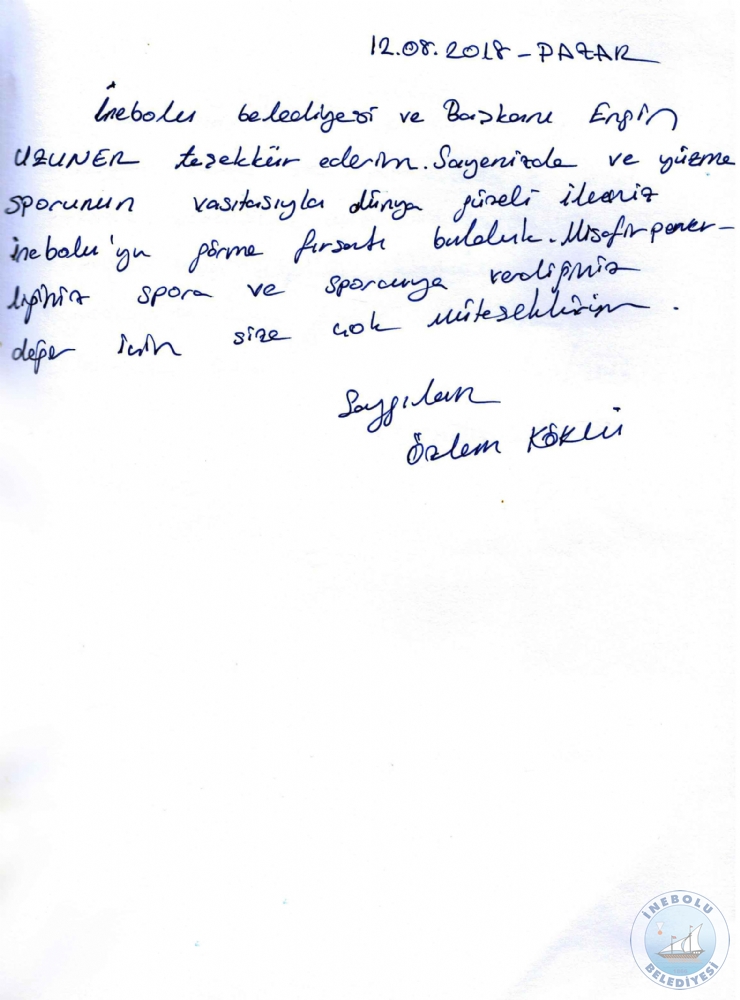 12.08.2018 - PAZAR
İnebolu belediyesi ve Başkanı Engin
UZUNER teşekkür ederim. Sayenizde ve yüzme
sporunun vasıtasıyla dünya güzeli ilçeniz
inebolu'yu görme fırsatı bulduk. Misafirperver-
liğiniz spora ve sporcuya verdiğiniz
değer için size çok müteşekkirim.
Saygılar
Özlem KÖKLÜ
İNEBOLU
BELEDİYESİ